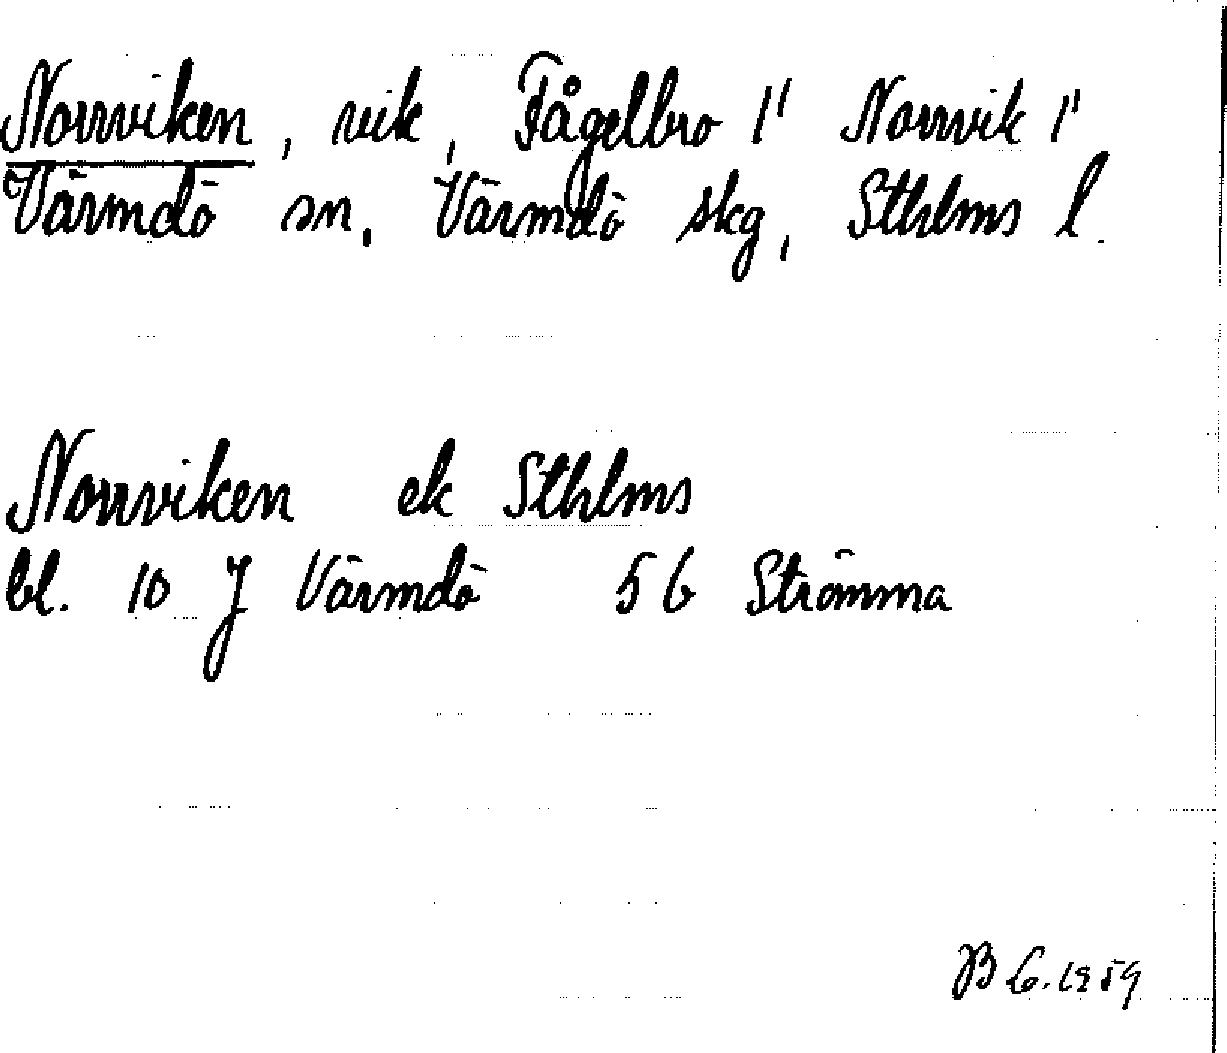 Norrviken, vik, Fågelbro 1¹ Norrvik 1¹
Värmdö sn, Värmdö skg, Sthlms l.
Norrviken ek Sthlms
bl. 10 J Värmdö 5 6 Strömma
B G. 1959